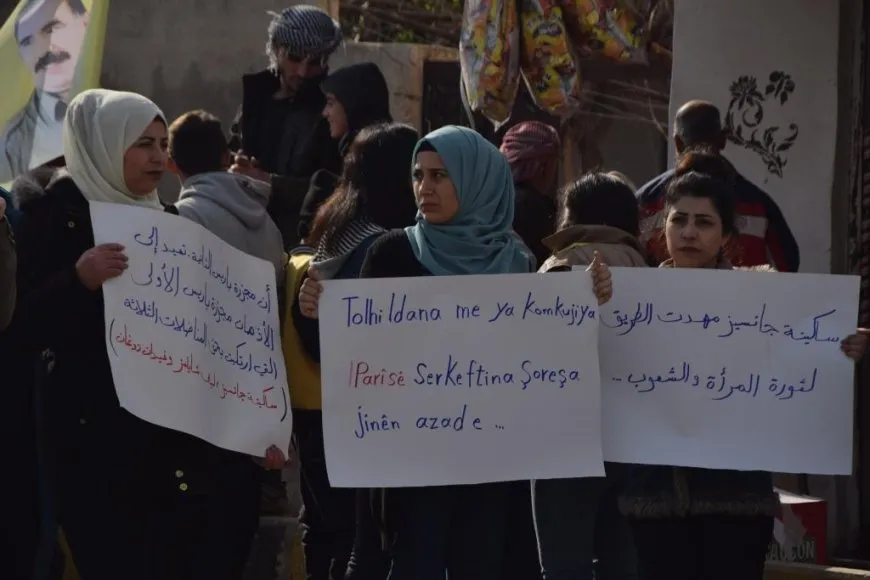 أن مجزرة باريس الثانية تعيد إلى
الأذهان مجزرة باريس الأولى
التي ارتكبت بحق المناضلات الثلاثة
(سكينة جانسيز وليلى شايلمز وفيدان دوغان)
Tolhildana me ya Komkujiya
Parîsê Serkeftina Şoreşa
jinên azad e ...
ساكينة جانسيز مهدت الطريق
لثورة المرأة والشعوب ...